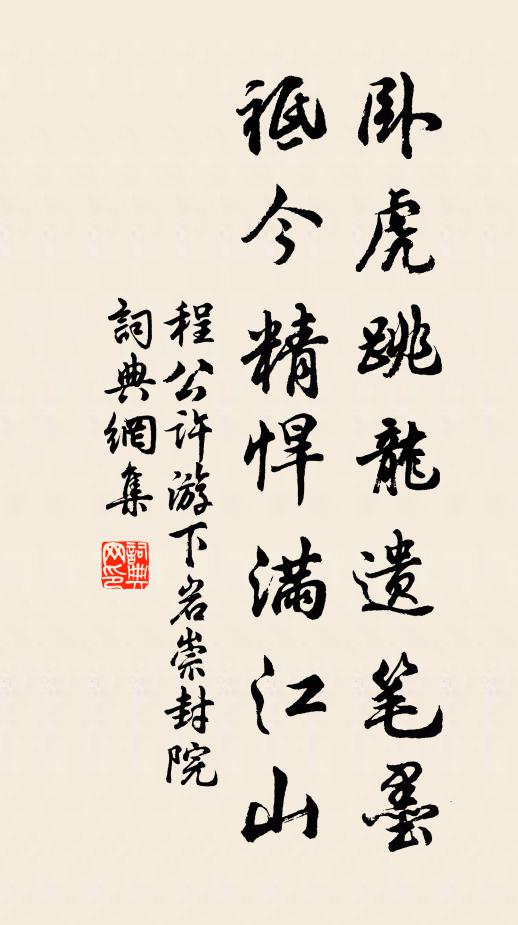 卧虎跳龍遗笔墨
祗今精悍满江山
程公许游下岩崇封院
詞典網集
詞典网印